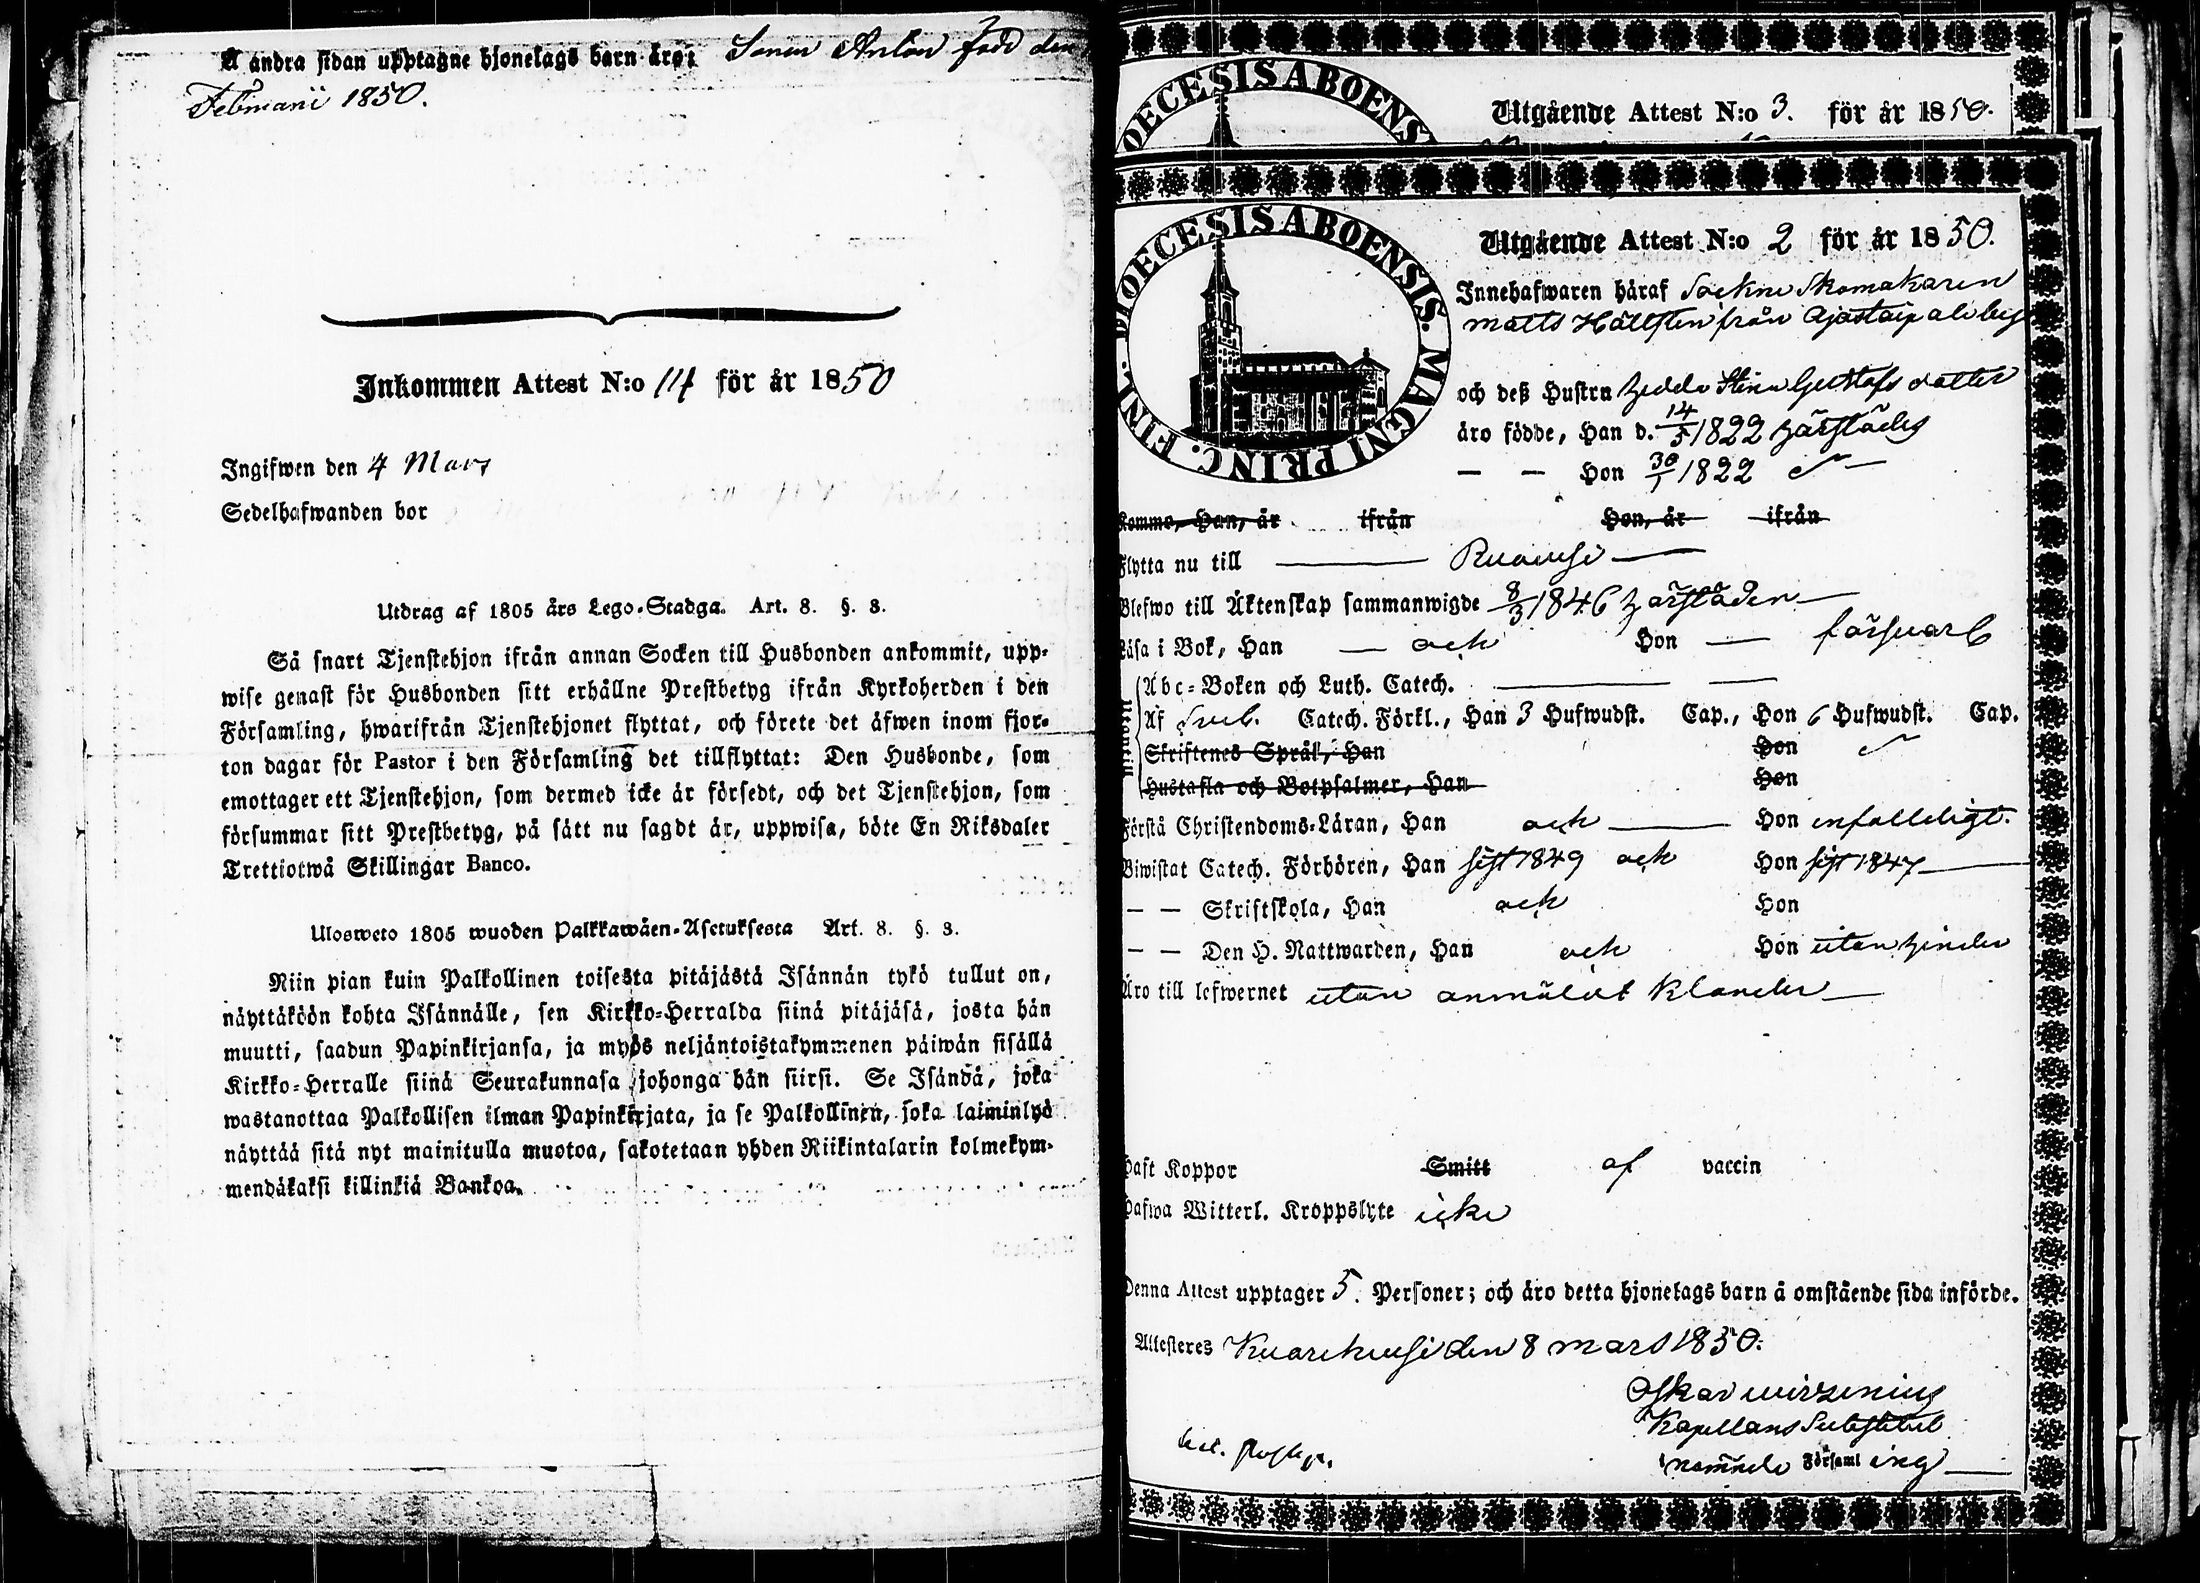 Å andra sidan upptagne hjonelags barn äro: Sonen Anton född den
Februarii 1850.
Inkommen Attest N:o 114 för år 1850
Ingifwen den 4 Mars
Sedelhafwanden bor
Utdrag af 1805 års Lego-Stadga. Art. 8. §. 8.
Så snart Tjenstehjon ifrån annan Socken till Husbonden ankommit, upp-
wise genast för Husbonden sitt erhållne Prestbetyg ifrån Kyrkoherden i den
Församling, hwarifrån Tjenstehjonet flyttat, och förete det äfwen inom fjor-
ton dagar för Pastor i den Församling det tillflyttat: Den Husbonde, som
emottager ett Tjenstehjon, som dermed icke är försedt, och det Tjenstehjon, som
försummar sitt Prestbetyg, på sätt nu sagdt är, uppwisa, böte En Riksdaler
Trettiotwå Skillingar Banco.
Ulosweto 1805 wuoden Palkkawäen-Asetuksesta Art. 8. §. 8.
Niin pian kuin Palkollinen toisesta pitäjästä Isännän tykö tullut on,
näyttäköön kohta Isännälle, sen Kirkko-Herralda siinä pitäjäsä, josta hän
muutti, saadun Papinkirjansa, ja myös neljäntoistakymmenen päiwän sisällä
Kirkko-Herralle siinä Seurakunnasa johonga hän siirsi. Se Isändä, joka
wastanottaa Palkollisen ilman Papinkirjata, ja se Palkollinen, joka laiminlyö
näyttää sitä nyt mainitulla muotoa, sakotetaan yhden Riikintalarin kolmekym-
mendäkaksi killinkiä Bankoa.
DIOECESIS ABOENSIS
Utgående Attest N:o 3. för år 1850.
DIOECESIS ABOENSIS. MAGNI PRINC. FINL.
Utgående Attest N:o 2 för år 1850.
Innehafwaren häraf Sockne Skomakaren
Matts Hällsten från
och deß Hustru Hedda Stina Gustafs dotter
äro födde, Han d. 14/5 1822 härstädes
— — Hon 30/1 1822
Komne, Han, år ifrån Hon, år ifrån
Flytta nu till
Blefwo till Äktenskap sammanwigde 8/3 1846 härstädes
Läsa i Bok, Han — och Hon — försvarl
Utantill
Abc-Boken och Luth. Catech.
Af Sveb. Catech. Förkl., Han 3 Hufwudst. Cap., Hon 6 Hufwudst. Cap.
Skriftenes Språk, Han Hon
Hustafla och Botpsalmer, Han Hon
Förstå Christendoms-Läran, Han och Hon enfalleligt.
Biwistat Catech. Förhören, Han sist 1849 och Hon sist 1847
— — Skriftskola, Han och Hon
— — Den H. Nattwarden, Han och Hon utan hinder
Äro till lefwernet utan anmäldt klander
Haft Koppor Smitt af vaccin
Hafwa Witterl. Kroppslyte icke
Denna Attest upptager 5. Personer; och äro detta hjonelags barn å omstående sida införde.
Attesteres den 8 mars 1850.
Oskar Wirzenius
Kapellans Substitut
i nämnde Församling